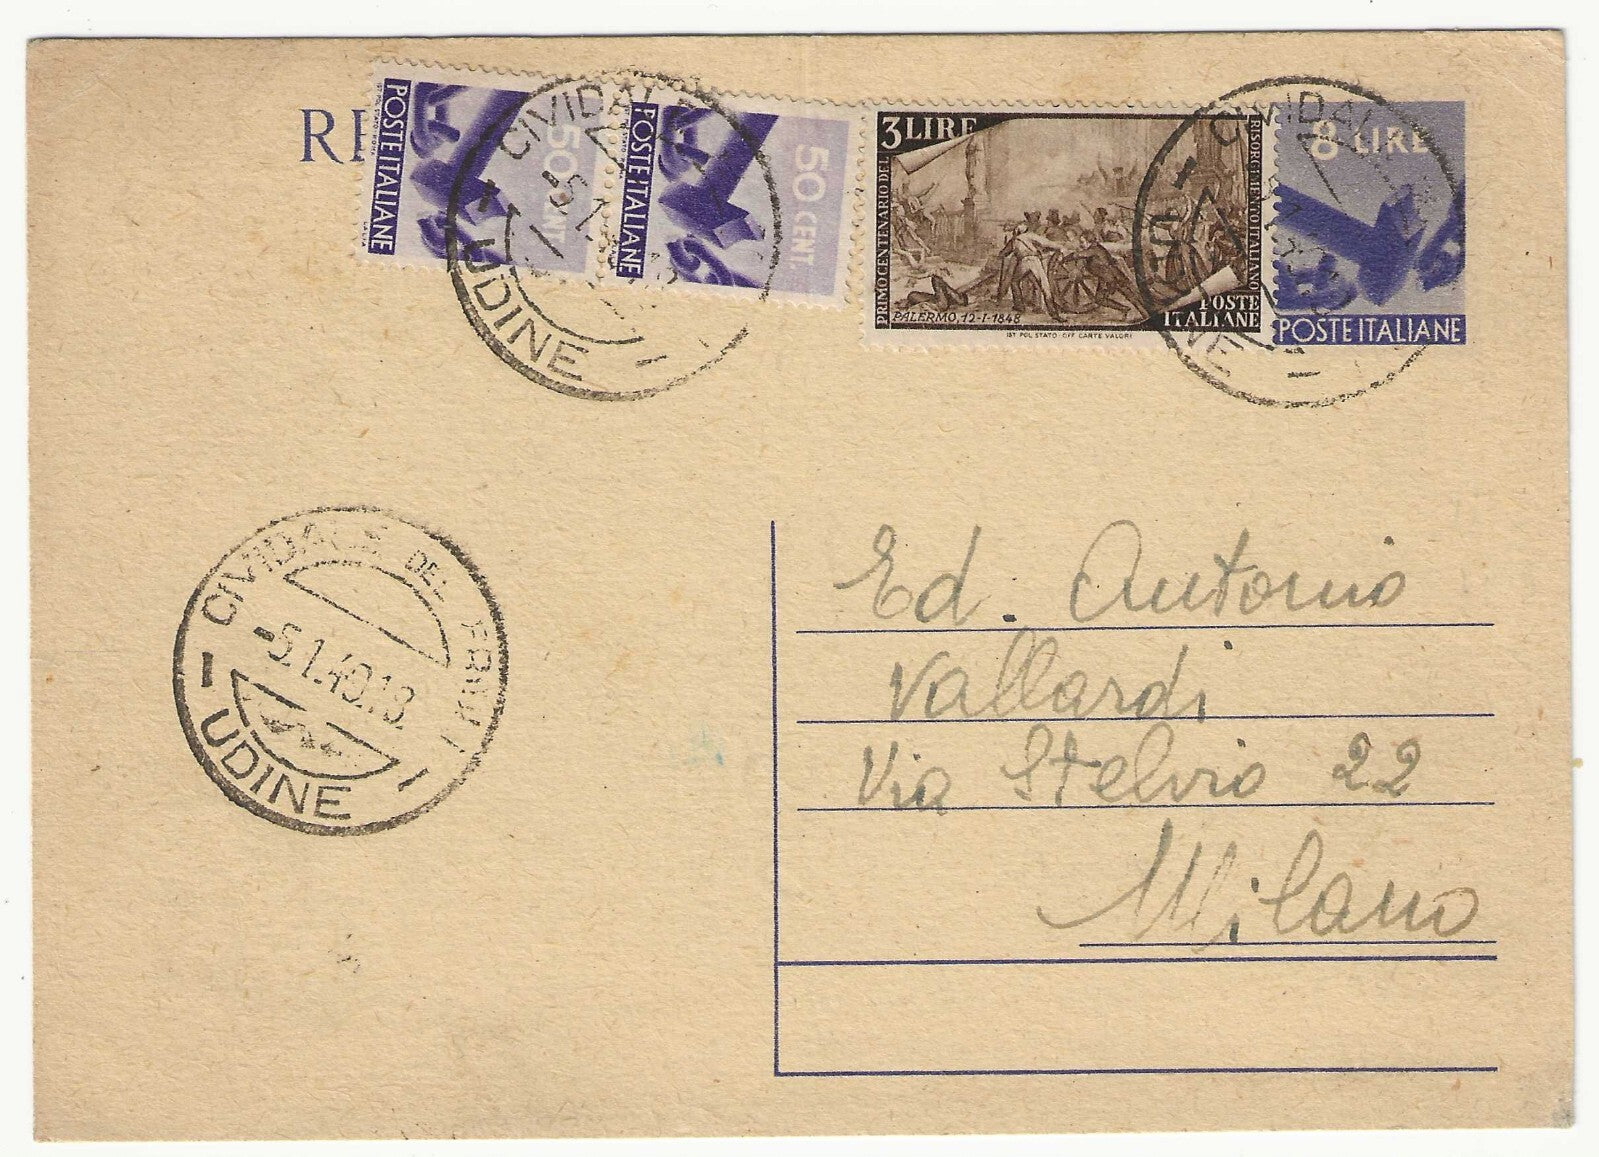 POSTE ITALIANE
50 CENT.
POSTE ITALIANE
50 CENT.
3 LIRE
PRIMO CENTENARIO DEL
RISORGIMENTO ITALIANO
PALERMO, 12-1-1848
POSTE
ITALIANE
IST. POL. STATO OFF. CARTE VALORI
8 LIRE
POSTE ITALIANE
CIVIDALE
UDINE
CIVIDAL
CIVIDALE DEL FRIULI
-5.1.49.18
UDINE
Ed. Antonio
Vallardi
Via Stelvio 22
Milano